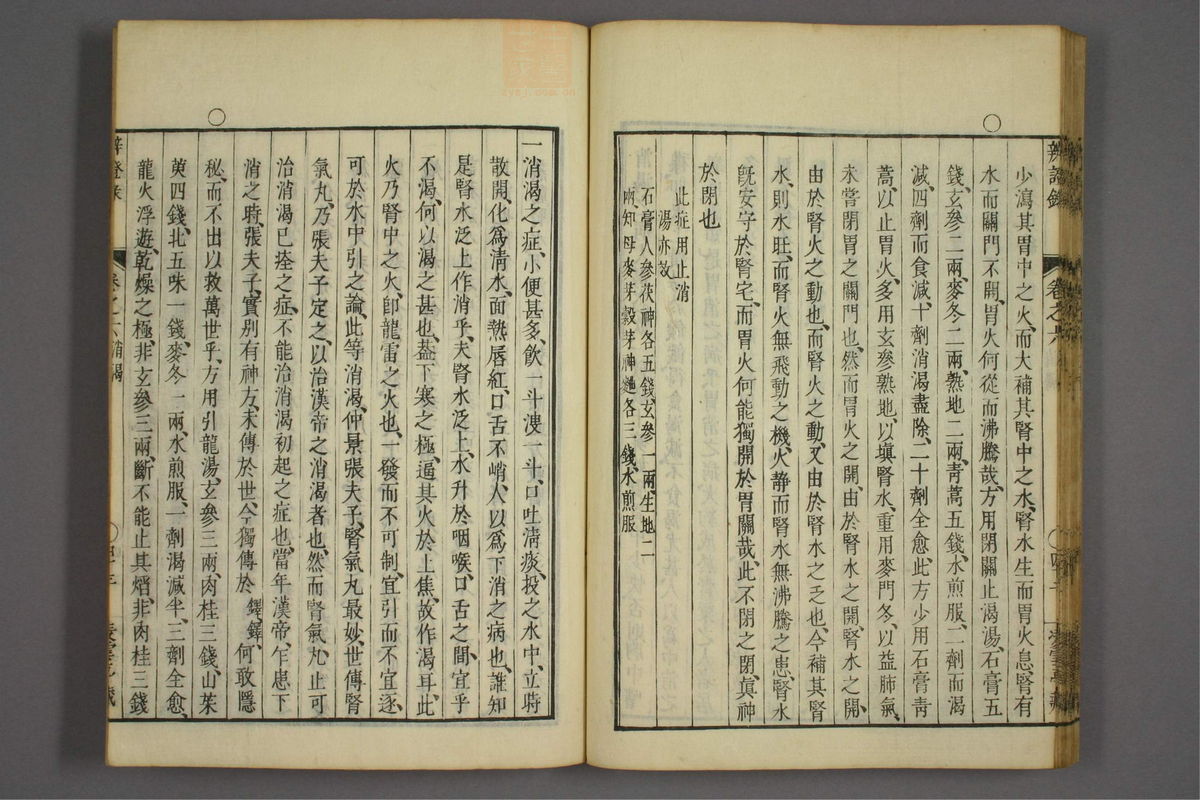 辨證錄
卷之六
少瀉其胃中之火、而大補其腎中之水、腎水生而胃火息、腎有
水而關門不開、胃火何從而沸騰哉、方用閉關止渴湯、石膏五
錢、玄參二兩、麥冬二兩、熟地二兩、靑蒿五錢、水煎服、二劑而渴
減、四劑而食減、十劑消渴盡除、二十劑全愈、此方少用石膏靑
蒿、以止胃火、多用玄參熟地、以塡腎水、重用麥門冬、以益肺氣、
未嘗閉胃之關門也、然而胃火之開、由於腎水之開、腎水之開、
由於腎火之動也、而腎火之動、又由於腎水之乏也、今補其腎
水、則水旺、而腎火無飛動之機、火靜而腎水無沸騰之患、腎水
旣安守於腎宅、而胃火何能獨開於胃關哉、此不閉之閉、眞神
於閉也、
此症用止消
湯亦效
石膏人參茯神各五錢、玄參一兩、生地二
兩、知母麥芽穀芽神麯各三錢、水煎服
一消渴之症、小便甚多、飮一斗溲一斗、口吐淸痰、投之水中、立時
散開、化爲淸水、面熱唇紅、口舌不峭、人以爲下消之病也、誰知
是腎水泛上作消乎、夫腎水泛上、水升於咽喉口舌之間、宜乎
不渴、何以渴之甚也、葢下寒之極、逼其火於上焦、故作渴耳、此
火乃腎中之火、卽龍雷之火也、一發而不可制、宜引而不宜逐、
可於水中引之論、此等消渴、仲景張夫子腎氣丸最妙、世傳腎
氣丸、乃張夫子定之、以治漢帝之消渴者也、然而腎氣丸、止可
治消渴已痊之症、不能治消渴初起之症也、當年漢帝、乍患下
消之時、張夫子、實別有神方、未傳於世、今獨傳於 鐸、鐸何敢隱
秘、而不出以救萬世乎、方用引龍湯、玄參三兩、肉桂三錢、山茱
萸四錢、北五味一錢、麥冬一兩、水煎服、一劑渴減半、三劑全愈、
龍火浮遊、乾燥之極、非玄參三兩、斷不能止其熖、非肉桂三錢
辨證錄
卷之六消渴
zysj.com.cn